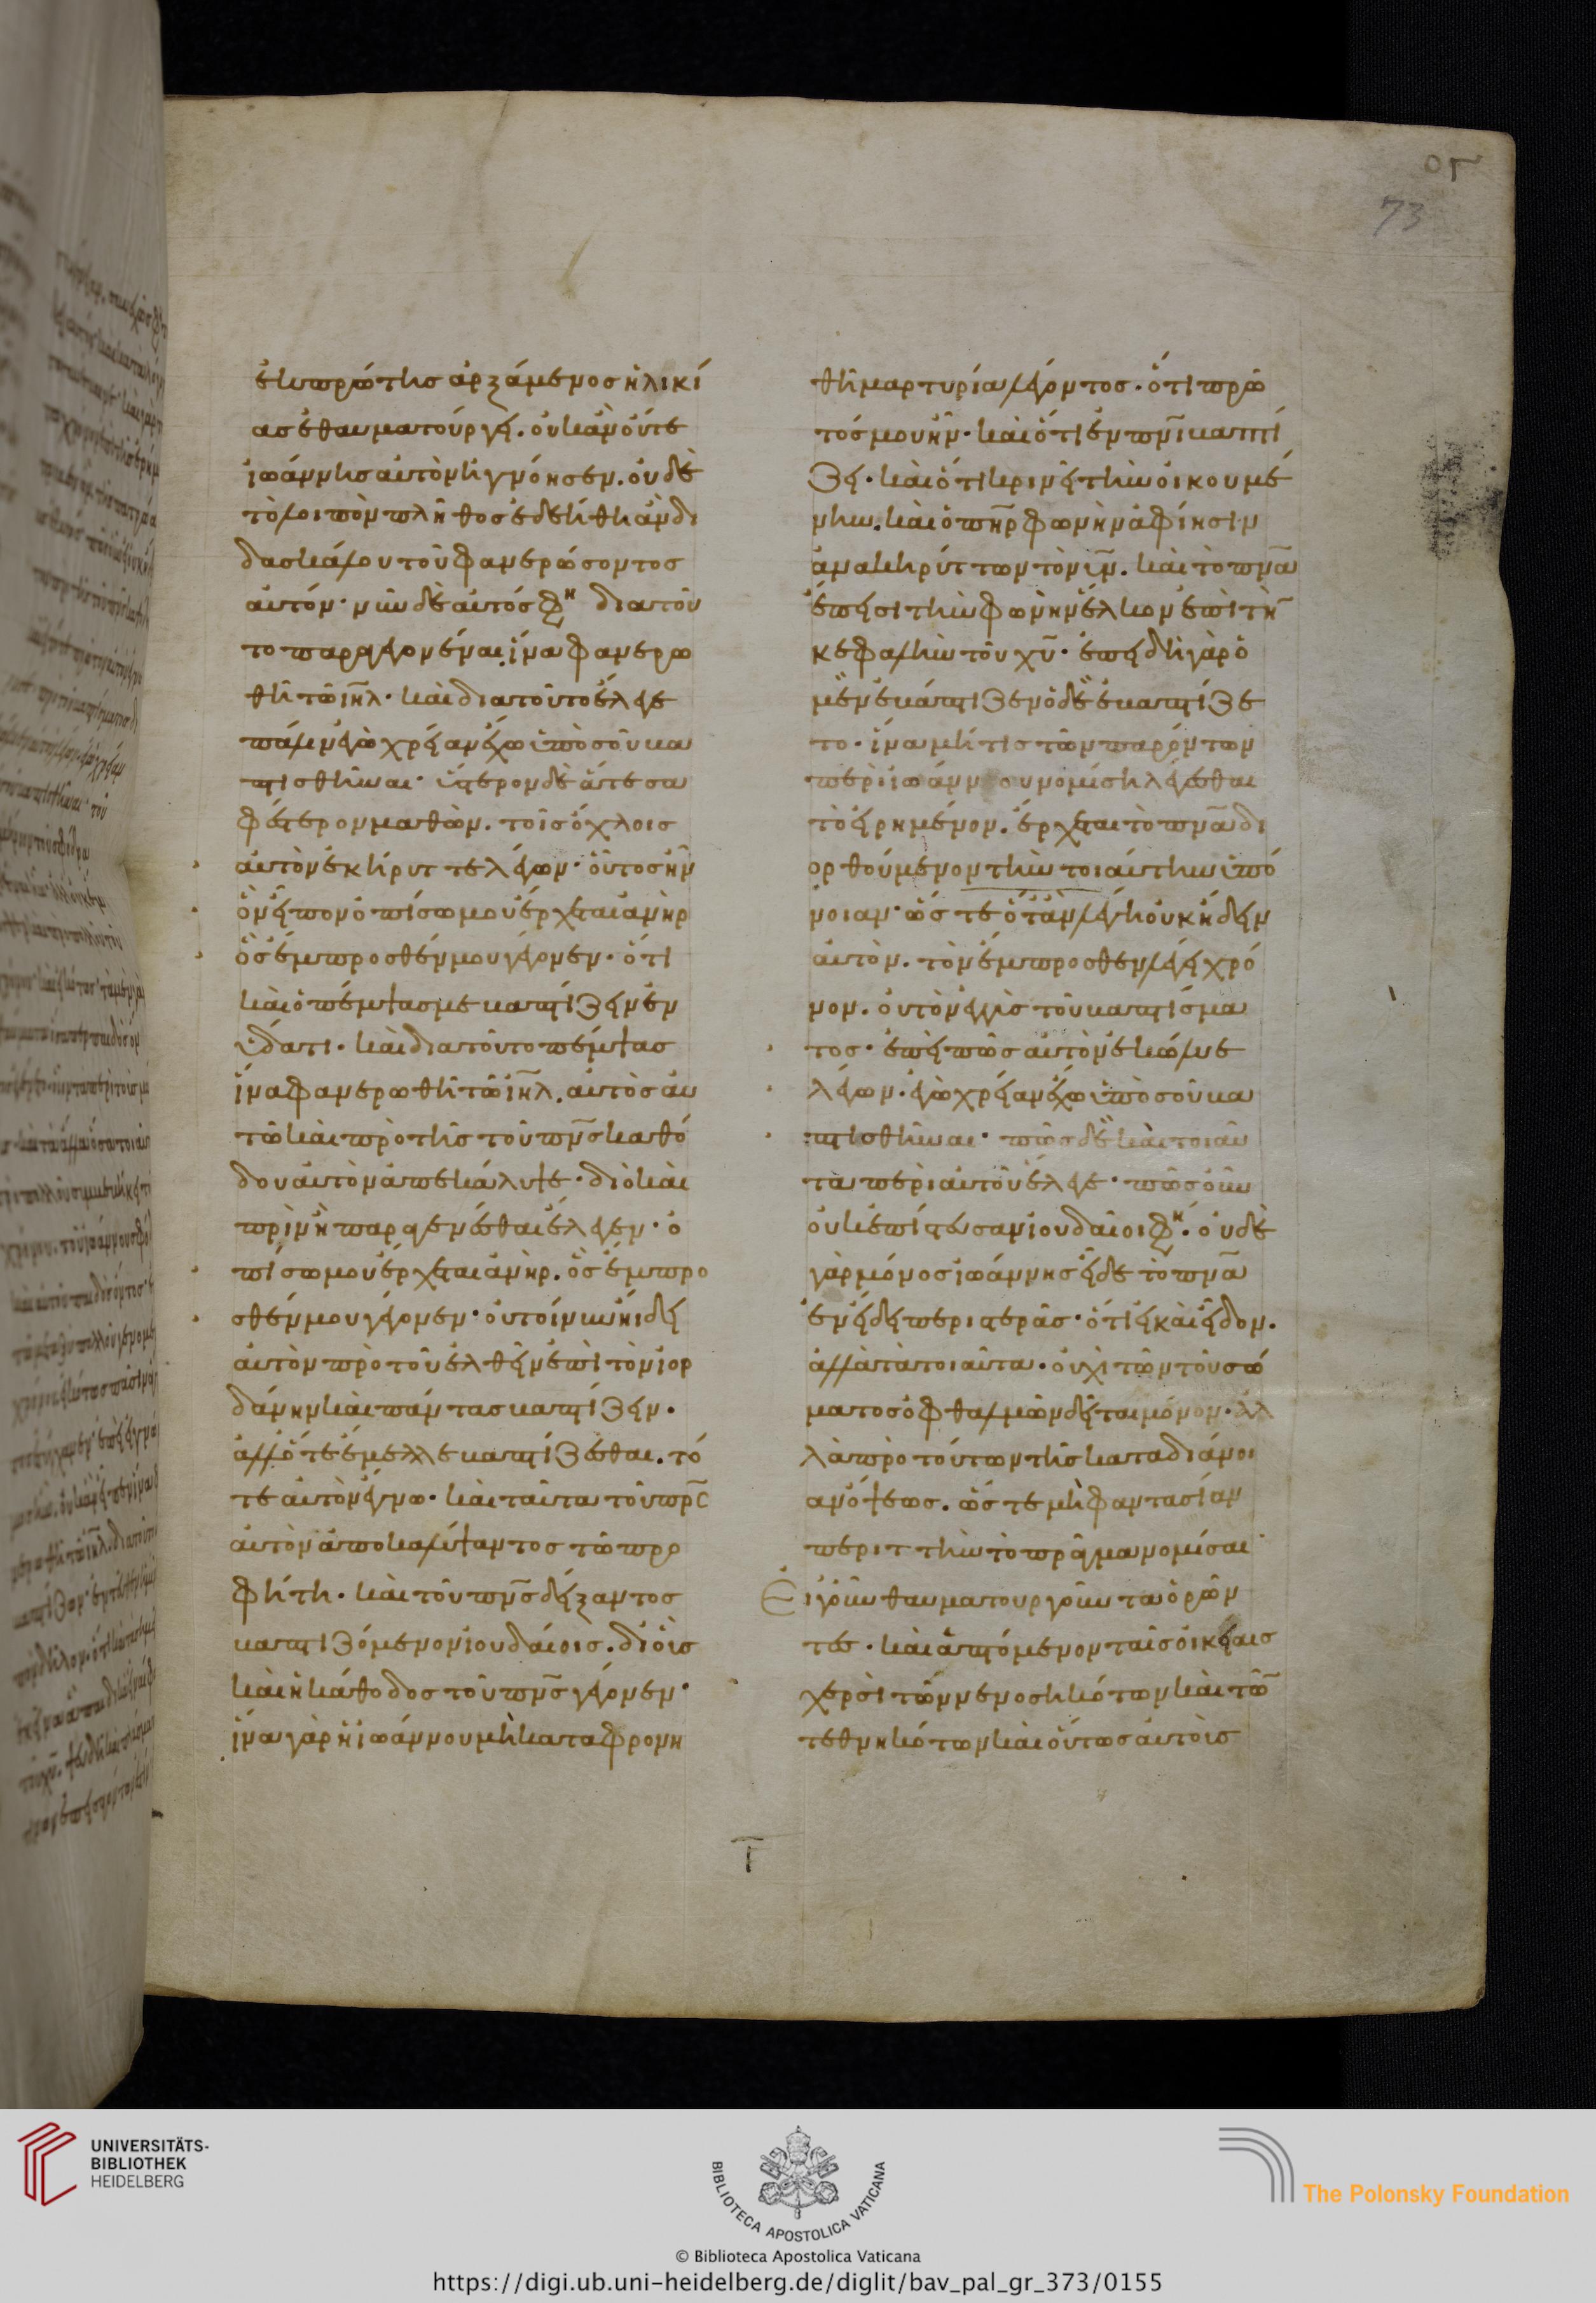 οϛ
73
ἐκ πρώτης ἀρξάμενος ἡλικί
ας ἐθαυματούργει. οὐκ ἂν οὔτε
ἰωάννης αὐτὸν ἠγνόησεν. οὐδὲ
τὸ λοιπὸν πλῆθος ἐδεήθη ἂν δι
δασκάλου τοῦ φανερώσοντος
αὐτόν· νῦν δὲ αὐτός φη διατοῦ
το παραγέγονέναι ἵνα φανερω
θῆ τῶ ιηλ· καὶ διατοῦτο ἔλεγε
πάλιν ἐγὼ χρείαν ἔχω ὑπὸ σοῦ βα
πτισθῆναι· ὕστερον δὲ ἅτε σα
φέστερον μαθὼν. τοῖς ὄχλοις
αὐτὸν ἐκήρυττε λέγων· οὗτος ἦν
ὃν εἶπον ὀπίσω μου ἔρχεται ἀνὴρ
ὃς ἔμπροσθέν μου γέγονεν· ὅτι
καὶ ὁ πέμψας με βαπτίζειν ἐν
ὕδατι· καὶ διατοῦτο πέμψας
ἵνα φανερωθῆ τῶ ιηλ. αὐτὸς αυ
τῶ καὶ πρὸ τῆς τοῦ πνς καθό
δου αὐτὸν ἀπεκάλυψε· διὸ καὶ
πρὶν ἢ παραγενέσθαι ἔλεγεν· ὁ
πίσω μου ἔρχεται ἀνὴρ. ὃς ἔμπρο
σθέν μου γέγονεν· οὔτοίνυν ἤιδει
αὐτὸν πρὸ τοῦ ἐλθεῖν ἐπὶ τὸν ἰορ
δάνην καὶ πάντας βαπτίζειν.
ἀλλ' ὅτε ἔμελλε βαπτίζεσθαι. τό
τε αὐτὸν ἔγνω· καὶ ταῦτα τοῦ πρς
αὐτὸν ἀποκαλύψαντος τῶ προ
φήτη· καὶ τοῦ πνς δείξαντος
βαπτιζόμενον ἰουδαίοις. δι' οὓς
καὶ ἡ κάθοδος τοῦ πνς γέγονεν·
ἵνα γὰρ ἡ ἰωάννου μὴ καταφρονη
θῆ μαρτυρία λέγοντος. ὅτι πρῶ
τός μου ἦν· καὶ ὅτι ἐν πνι βαπτί
ζει· καὶ ὅτι κρινεῖ τὴν οἰκουμέ
νην. καὶ ὁ πηρ φωνὴν ἀφίησιν
ἀνακηρύττων τὸν υν. καὶ τὸ πνα
ἔπεισι τὴν φωνὴν ἕλκον ἐπὶ τὴν
κεφαλὴν τοῦ χυ· ἐπειδὴ γὰρ ὁ
μὲν ἐβάπτιζεν ὁ δὲ ἐβαπτίζε
το· ἵνα μή τις τῶν παρόντων
περὶ ἰωάννου νομίση λέγεσθαι
τὸ εἰρημένον. ἔρχεται τὸ πνα δι
ορθούμενον τὴν τοιαύτην ὑπό
νοιαν· ὥστε ὅταν λέγη οὐκ ἤδειν
αὐτὸν. τὸν ἔμπροσθεν λέγει χρό
νον. οὐ τὸν ἐγγὺς τοῦ βαπτίσμα
τος· ἐπεὶ πῶς αὐτὸν ἐκώλυε
λέγων· ἐγὼ χρείαν ἔχω ὑπὸ σοῦ βα
πτισθῆναι· πῶς δὲ καὶ τοιαῦ
τα περὶ αὐτοῦ ἔλεγε· πῶς οὖν
οὐκ ἐπίστευσαν ἰουδαῖοι φη· οὐδὲ
γὰρ μόνος ἰωάννης εἶδε τὸ πνα
ἐν εἴδει περιστερᾶς· ὅτι εἰ καὶ εἶδον.
ἀλλὰ τὰ τοιαῦτα· οὐχὶ τῶν τοῦ σώ
ματος ὀφθαλμῶν δεῖται μόνον· ἀλ
λὰ πρὸ τούτων τῆς κατὰ διάνοι
αν ὄψεως. ὥστε μὴ φαντασίαν
περιττὴν τὸ πρᾶγμα νομίσαι
Εἰ γοῦν θαυματουργοῦντα ὁρῶν
τες· καὶ ἁπτόμενον ταῖς οἰκείαις
χερσὶ τῶν νενοσηκότων καὶ τῶν
τεθνηκότων καὶ οὕτως αὐτοῖς
UNIVERSITÄTS-
BIBLIOTHEK
HEIDELBERG
BIBLIOTECA APOSTOLICA VATICANA
The Polonsky Foundation
© Biblioteca Apostolica Vaticana
https://digi.ub.uni-heidelberg.de/diglit/bav_pal_gr_373/0155